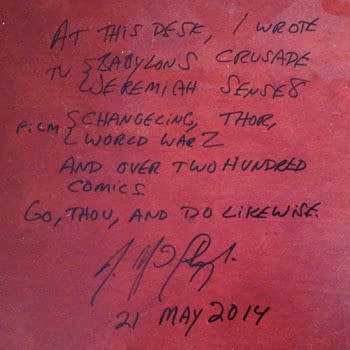 AT THIS DESK, I WROTE
TV { BABYLON5 CRUSADE
JEREMIAH SENSE8
FILM { CHANGELING, THOR,
WORLD WAR Z
AND OVER TWO HUNDRED
COMICS
GO, THOU, AND DO LIKEWISE.
21 MAY 2014